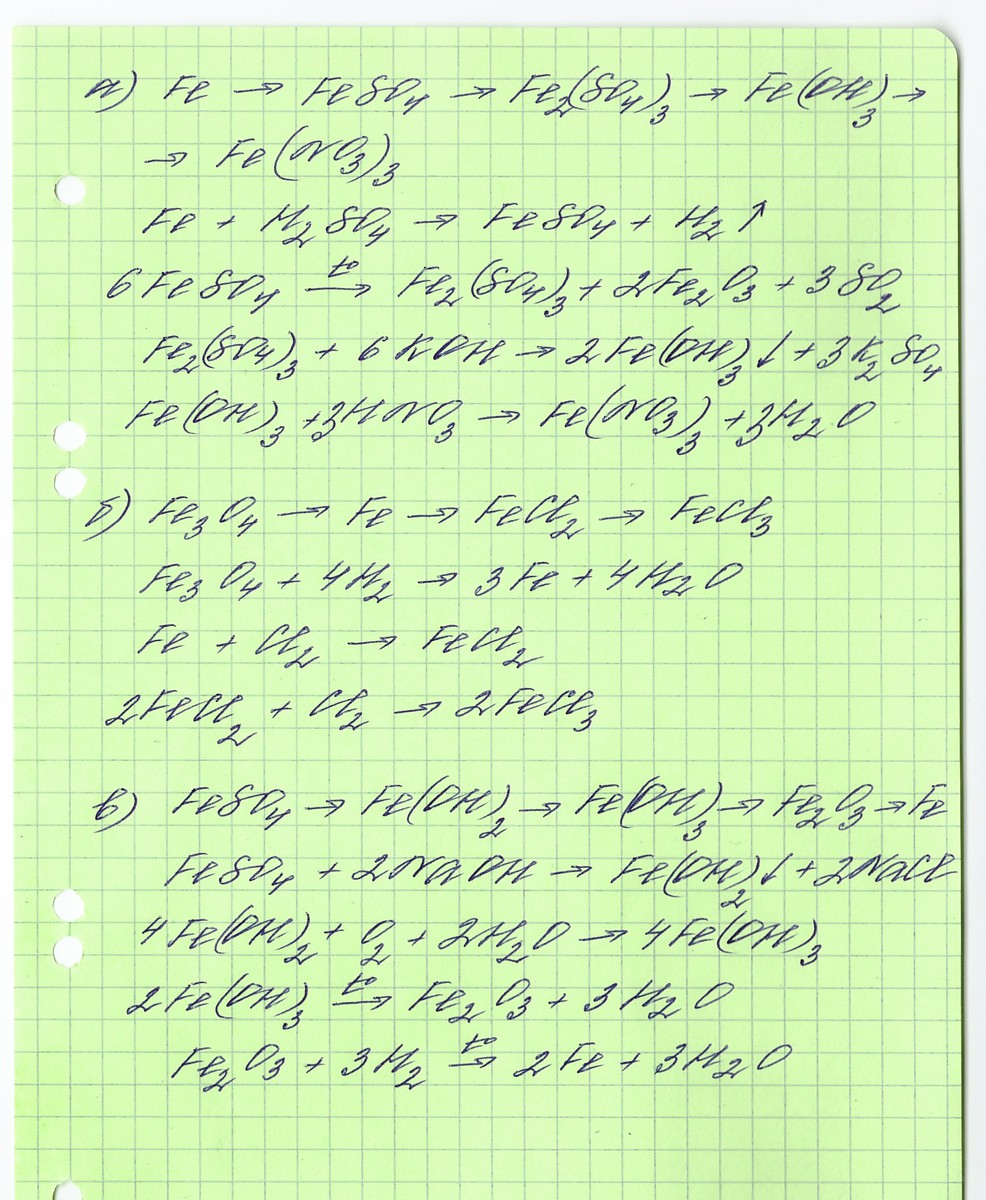 а) Fe → FeSO₄ → Fe₂(SO₄)₃ → Fe(OH)₃ →
→ Fe(NO₃)₃
Fe + H₂SO₄ → FeSO₄ + H₂↑
6FeSO₄ —t°→ Fe₂(SO₄)₃ + 2Fe₂O₃ + 3SO₂
Fe₂(SO₄)₃ + 6KOH → 2Fe(OH)₃↓ + 3K₂SO₄
Fe(OH)₃ + 3HNO₃ → Fe(NO₃)₃ + 3H₂O
б) Fe₃O₄ → Fe → FeCl₂ → FeCl₃
Fe₃O₄ + 4H₂ → 3Fe + 4H₂O
Fe + Cl₂ → FeCl₂
2FeCl₂ + Cl₂ → 2FeCl₃
в) FeSO₄ → Fe(OH)₂ → Fe(OH)₃ → Fe₂O₃ → Fe
FeSO₄ + 2NaOH → Fe(OH)₂↓ + 2NaCl
4Fe(OH)₂ + O₂ + 2H₂O → 4Fe(OH)₃
2Fe(OH)₃ —t°→ Fe₂O₃ + 3H₂O
Fe₂O₃ + 3H₂ —t°→ 2Fe + 3H₂O